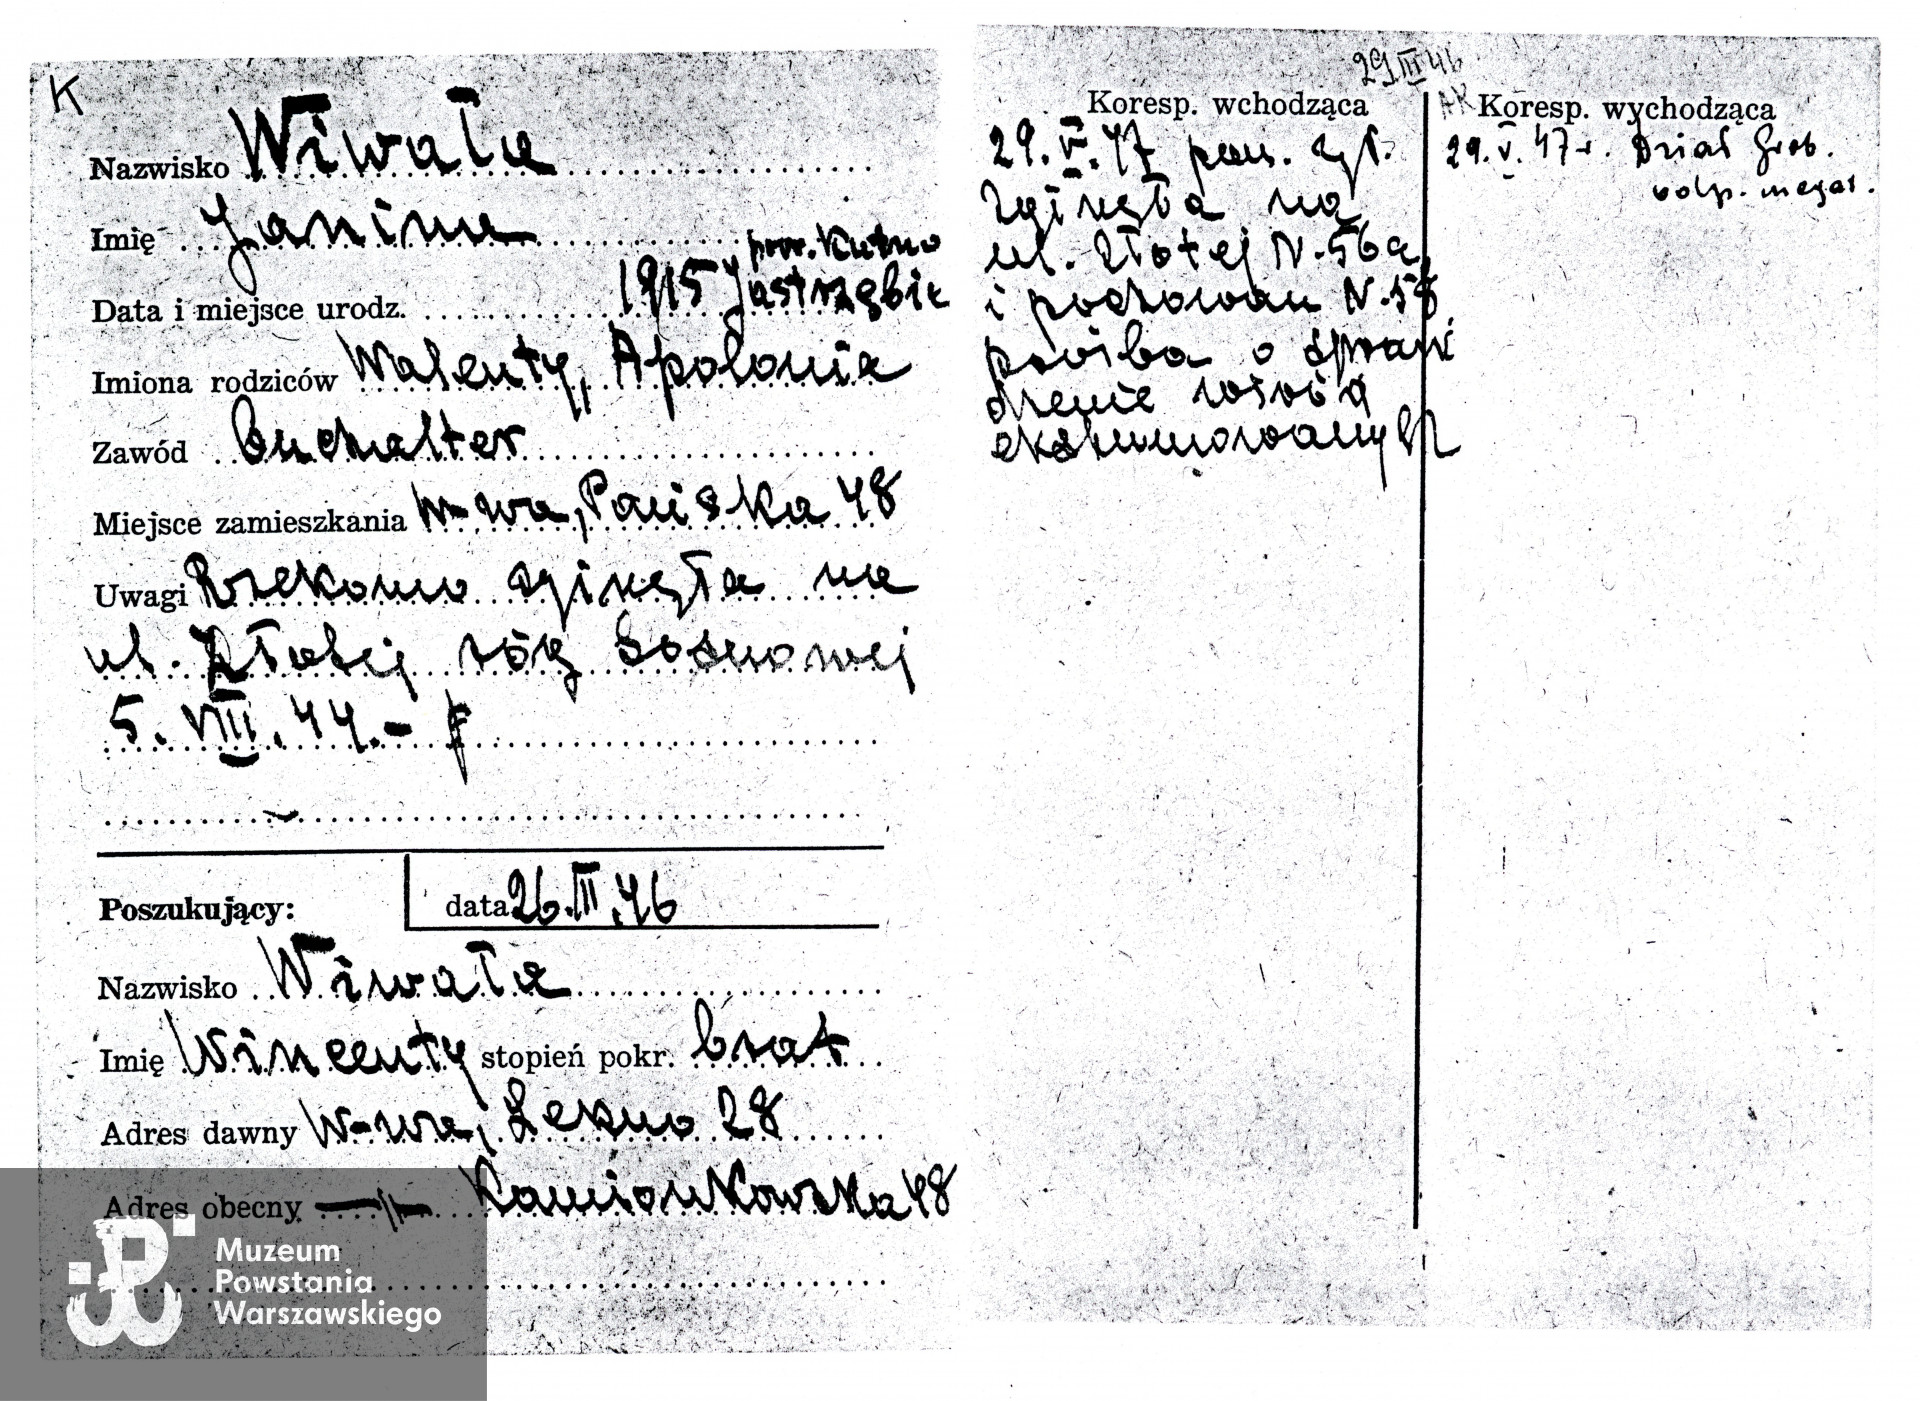 K
Nazwisko Wiwała
Imię Janina
pow. Kutno
Data i miejsce urodz. 1915 Jastrzębie
Imiona rodziców Walenty, Apolonia
Zawód buchalter
Miejsce zamieszkania W-wa, Pańska 48
Uwagi Rzekomo zginęła na
ul. Złotej róg Sosnowej
5. VIII. 44.-
Poszukujący: data 26.III.46
Nazwisko Wiwała
Imię Wincenty stopień pokr. brat
Adres dawny W-wa, Leszno 28
Adres obecny —"— Kamionkowska 48
Muzeum
Powstania
Warszawskiego
29 III 46
Koresp. wchodząca
29. V. 47 pon. zgł.
zginęła na
ul. Złotej N. 56a
i pochowan N. 58
prośba o spraw
dzenie wśród
ekshumowanych
Koresp. wychodząca
29. V. 47 r. Dział Grob.
odp. negat.